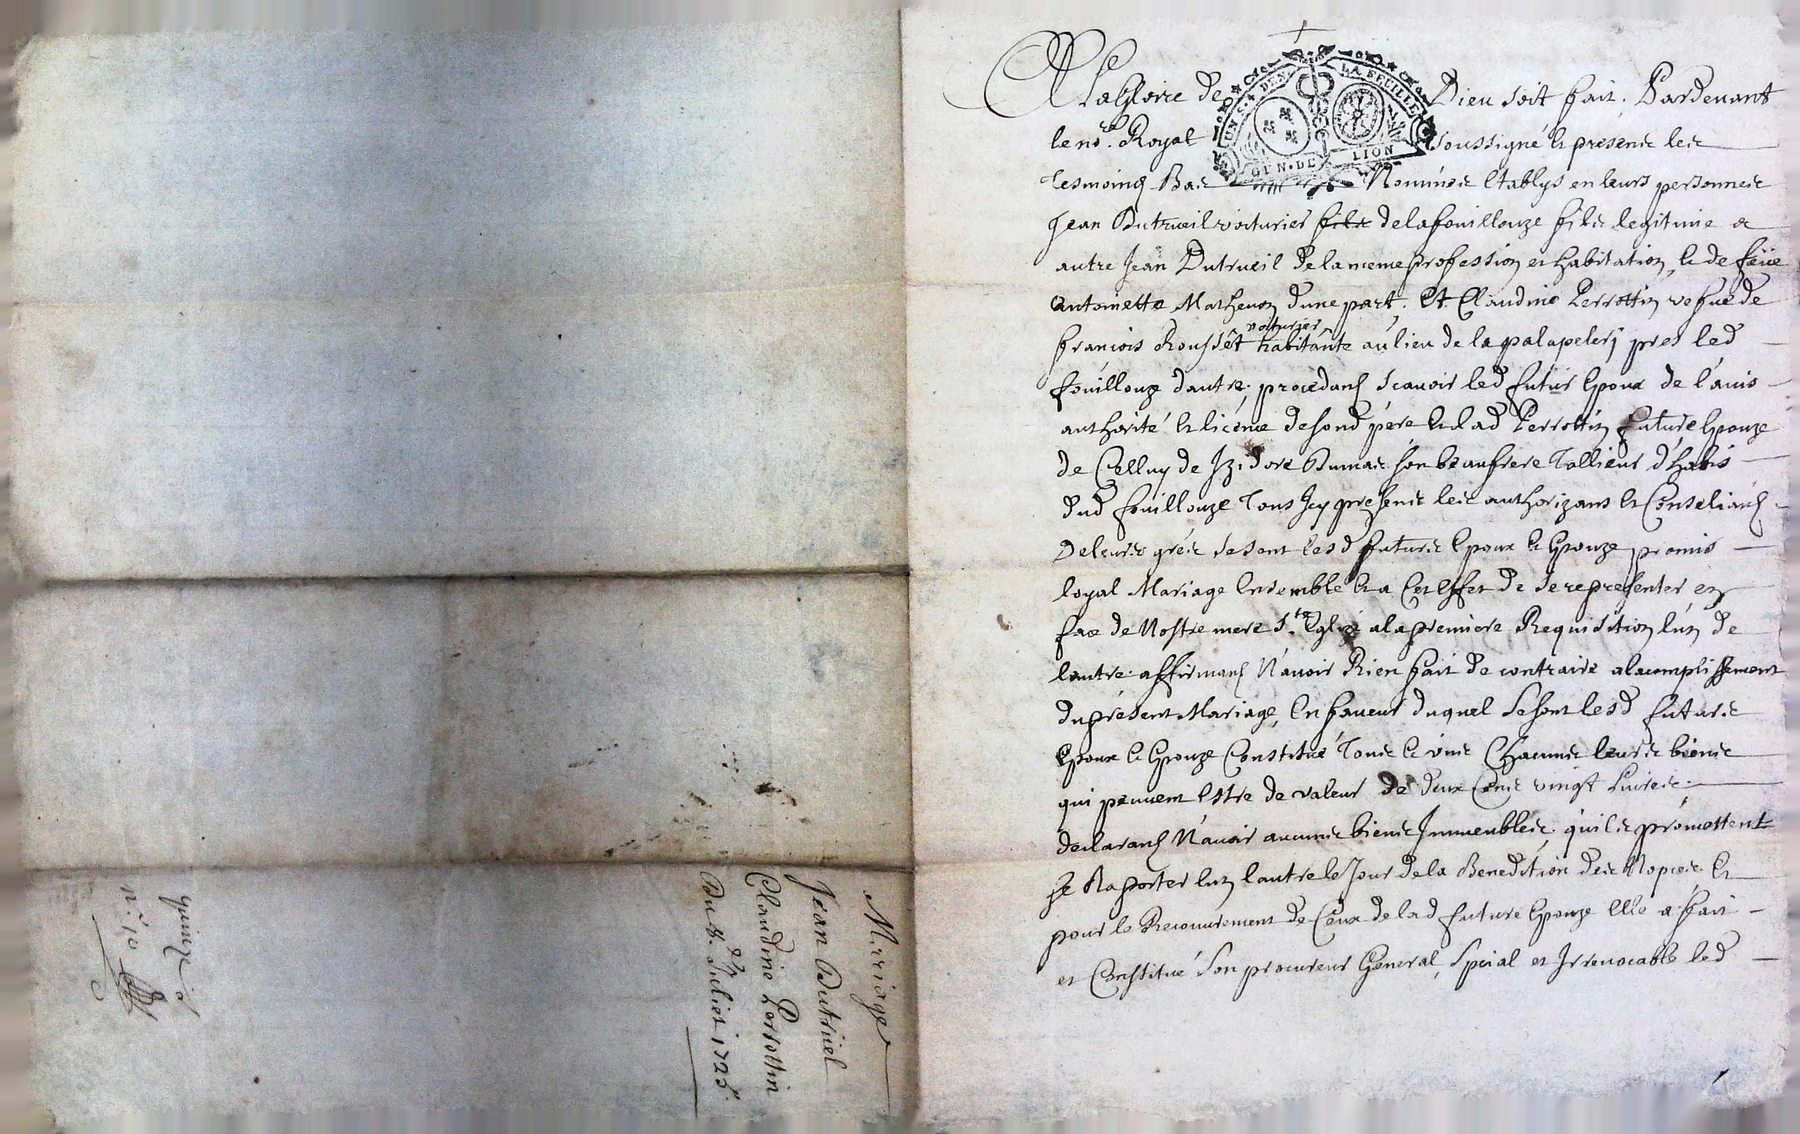 A La Gloire de Dieu soit fait. Pardevant
le nore. Royal soussigné et presents les
tesmoins Bas Nommés Establys en leurs personnes
Jean Dutrueil voiturier fils de la fouillouze fils legitime a
autre Jean Dutrueil de la meme profession et habitation, et de feüe
antoinette Mathevon d'une part. Et Claudine Perrottin vefue de
françois Rousset voiturier habitante au lieu de la palapelerj pres led
foüillouze d'autre; procedans scavoir led futur Epoux de l'auis
authorité et licence de sond père et lad Perrottin future Epouze
de Celluy de Izidore Dumas son beaufrere Tallieur d'habis
dud foüillouze Tous Icy presents les authorizans et Conseliants
De leurs grés se sont lesd futurs Epoux et Epouze promis
loyal Mariage Ensemble et a Cet effet de se representer en
face de Nostre mere Ste. Eglize a la premiere Requisition l'un de
lautre affirmans N'auoir Rien fait de contraire a lacomplissement
du present Mariage, En faueur duquel se sont lesd futurs
Epoux et Epouze Constitué Tous et vns Chacuns leurs biens
qui peuuent Estre de valeur de deux Cens vingt Liures
declarans N'auoir aucuns biens Immeubles qu'ils promettent
se Raporter l'un lautre le Jour de la Benedition des Nopces Et
pour le Recouurement de Ceux de lad future Epouze Elle a fait
et Constitué son procureur General, Special et Irreuocable led
UN S. 4 DEN. LA FEUILLE
GEN. DE LION
Mariage
Jean Dutruiel
Claudine Perrottin
Du Juliet 1725
quinze s
n.° 10